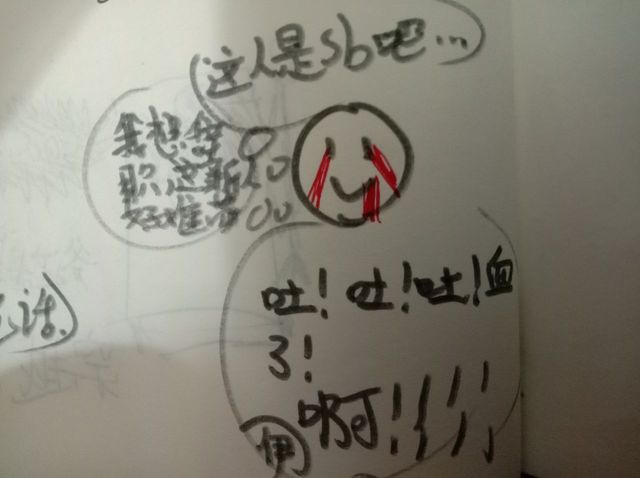 这人是sb吧…
我想辞
职,这班
好难带
话.
吐!吐!吐!血
3!
啊!!!!!